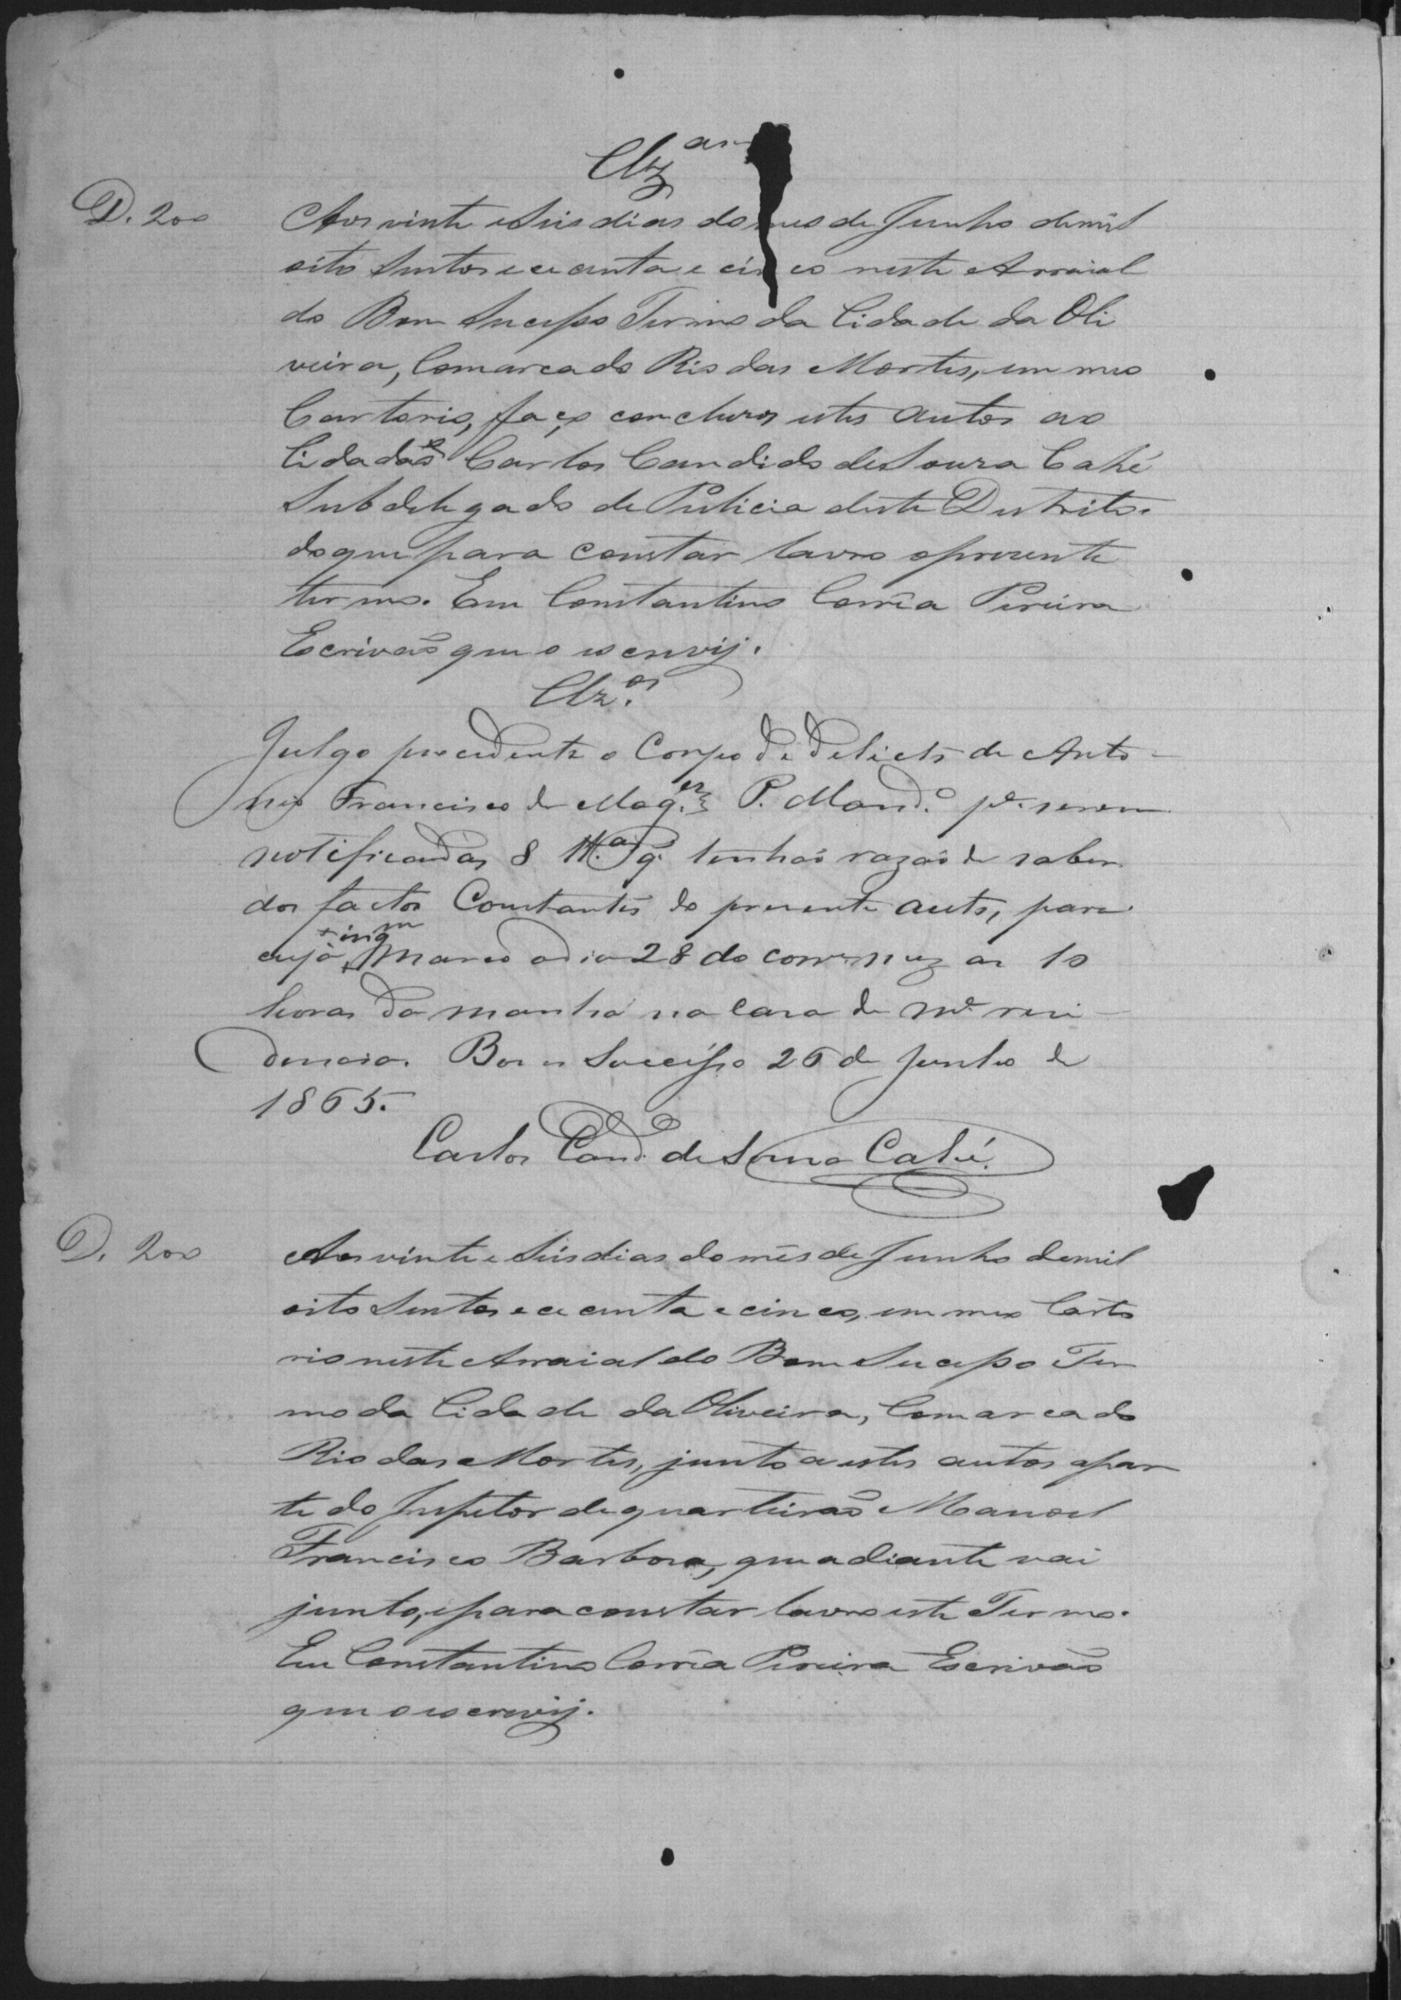 Clz.am
D. 200
Aos vinte e Seis dias do mes de Junho demil
oito Sentos e cecenta e cinco neste Arraial
do Bom Sucesso Termo da Cidade da Oli
veira, Comarca do Rio das Mortes, em meo
Cartorio, faço concluzos estes autos ao
Cidadaõ Carlos Candido de Souza Cahé
Subdelegado de Pulicia deste Destrito.
do que para constar lavro o prezente
termo. Eu Constantino Corrêa Pereira
Escrivaõ que o escrevij.
Clz.os
Julgo procedente o Corpo de delicto de Anto-
nio Francisco de Mag.es P. Mand.o p.a serem
notificadas 8 tt.as q. tenhaõ razaõ de saber
dos factos Constantes do presente auto, para
cuja inq.m marco o dia 28 do corr.e mez as 10
horas da manhã na casa de m.a resi-
dencia. Bom Successo 26 de Junho de
1865.
Carlos Cand.o de Souza Cahé.
D. 200
Aos vinte e Seis dias do mês de Junho demil
oito Sentos e cecenta e cinco, em meo Carto
rio neste Arraial do Bom Sucesso Ter
mo da Cidade da Oliveira, Comarca do
Rio das Mortes, junto a estes autos a par
te do Inspetor de quarteiraõ Manoel
Francisco Barbosa, que adiante vai
junto, e para constar lavro este Termo.
Eu Constantino Corrêa Pereira Escrivaõ
que o escrevij.